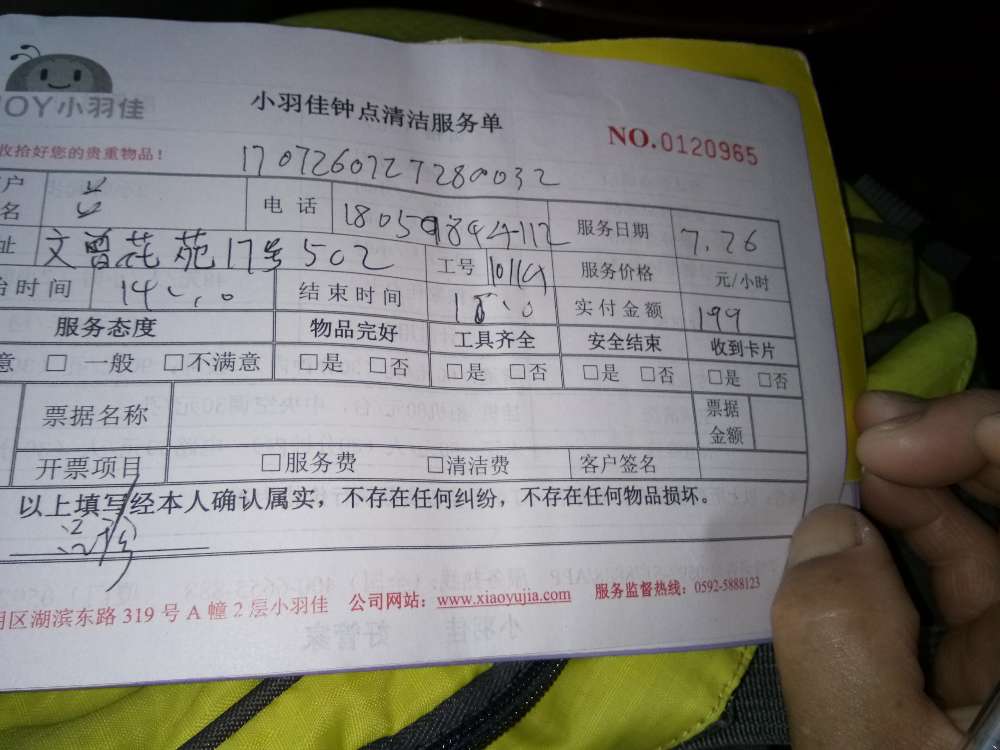 JOY小羽佳
小羽佳钟点清洁服务单
NO.0120965
收拾好您的贵重物品!
1707260727280032
户名 电话 服务日期 7.26
址 文曾花苑17号502 工号 服务价格 元/小时
始时间 14 结束时间 实付金额 199
服务态度 物品完好 工具齐全 安全结束 收到卡片
意 □ 一般 □不满意 □是 □否 □是 □否 □是 □否 □是 □否
票据名称 票据金额
开票项目 □服务费 □清洁费 客户签名
以上填写经本人确认属实，不存在任何纠纷，不存在任何物品损坏。
明区湖滨东路 319 号 A 幢 2 层小羽佳 公司网站：www.xiaoyujia.com 服务监督热线：0592-5888123